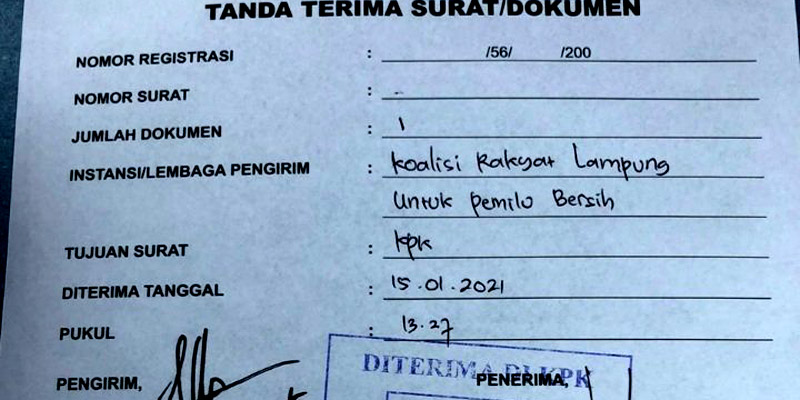 TANDA TERIMA SURAT/DOKUMEN
NOMOR REGISTRASI : /56/ /200
NOMOR SURAT : -
JUMLAH DOKUMEN : 1
INSTANSI/LEMBAGA PENGIRIM : Koalisi Rakyat Lampung
Untuk Pemilu Bersih
TUJUAN SURAT : KPK
DITERIMA TANGGAL : 15.01.2021
PUKUL : 13.27
DITERIMA DI KPK
PENGIRIM, PENERIMA,